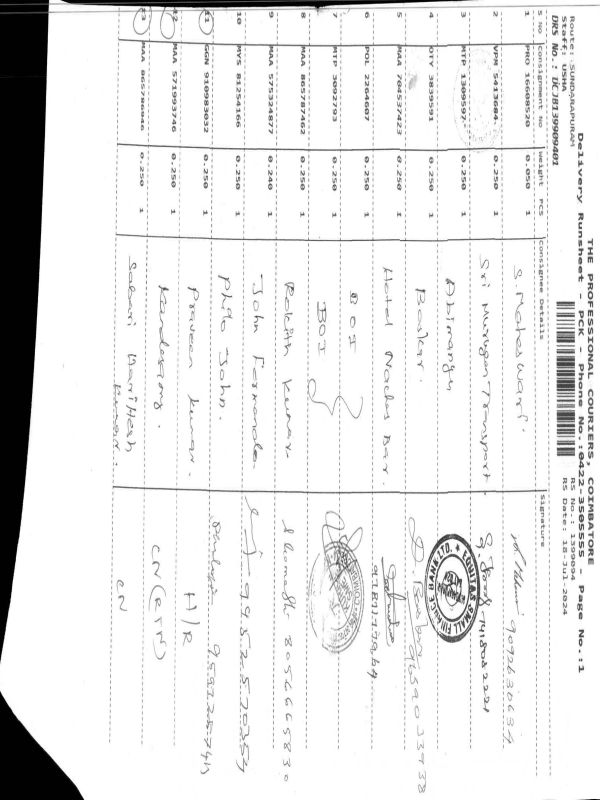 THE PROFESSIONAL COURIERS, COIMBATORE
Delivery Runsheet - PCK - Phone No.:0422-3505555 - Page No.:1
Route: SUNDARAPURAM RS No.: 1399094
Staff: USHA RS Date: 18-Jul-2024
DRS No.: DCJB139909401
S No Consignment No Weight PCS Consignee Details Signature
1 PRO 16608520 0.050 1 S. Mateswari. 9092630634
2 VPM 5413684 0.250 1 Sri Murugan Transport.
3 MTP 1309597 0.250 1 Abimanyu EQUITAS SMALL FINANCE BANK LTD.
4 OTY 3839591 0.250 1 Baskar.
5 MAA 704537423 0.250 1 Hotel Bar.
6 POL 2264607 0.250 1 BOI
7 MTP 3092793 0.250 1 BOI
8 MAA 865787462 0.250 1 Rakith Kumar 8056665830
9 MAA 575324877 0.240 1 John Fernando 9952570354
10 MYS 81254166 0.250 1 Philo John.
11 GGN 910983032 0.250 1 Praveen Kumar. H/R
12 MAA 571993746 0.250 1 Kandasamy. CN (RTN)
13 MAA 865786946 0.250 1 Sabari Harihesh CN